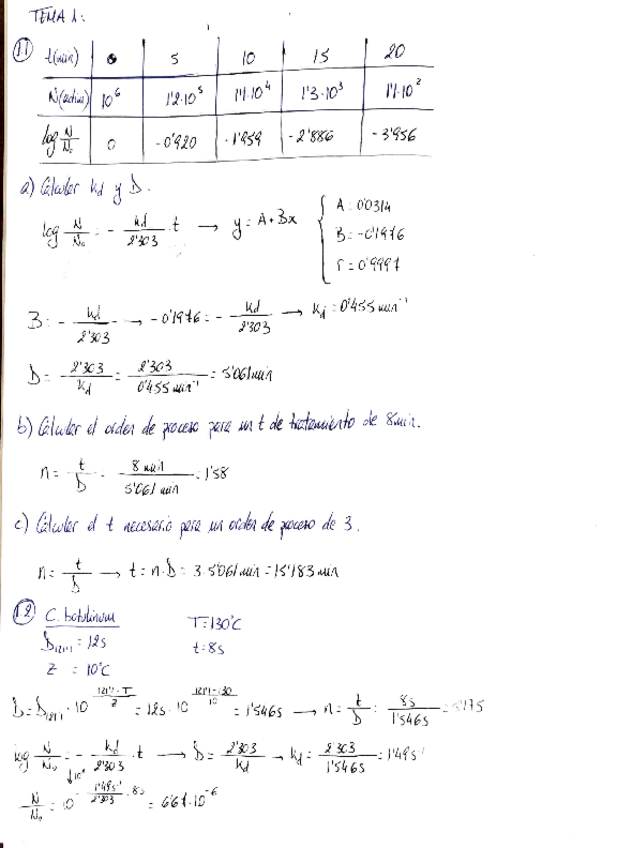 TEMA 1:
1.1 t(min) 0 5 10 15 20
N(activa) 10⁶ 1'2·10⁵ 1'1·10⁴ 1'3·10³ 1'1·10²
log N/N₀ 0 -0'920 -1'959 -2'886 -3'956
a) Calcular kd y D.
log N/N₀ = - kd/2'303 · t → y = A + Bx { A: 0'0314
B: -0'1976
r: 0'9997
B: - kd/2'303 → -0'1976 = - kd/2'303 → kd: 0'455 min⁻¹
D = - 2'303/kd = 2'303/0'455 min⁻¹ = 5'061 min
b) Calcular el orden de proceso para un t de tratamiento de 8 min.
n = t/D = 8 min/5'061 min = 1'58
c) Calcular el t necesario para un orden de proceso de 3.
n = t/D → t = n·D = 3·5'061 min = 15'183 min
1.2 C. botulinum T = 130°C
D121'1 = 12s t = 8s
Z = 10°C
D = D121'1 · 10^(121'1-T/Z) = 12s · 10^(121'1-130/10) = 1'546s → n = t/D = 8s/1'546s = 5'175
log N/N₀ = - kd/2'303 · t → D = 2'303/kd → kd = 2'303/1'546s = 1'49s⁻¹
↓10ˣ
N/N₀ = 10^(- 1'49s⁻¹/2'303 · 8s) = 6'67·10⁻⁶